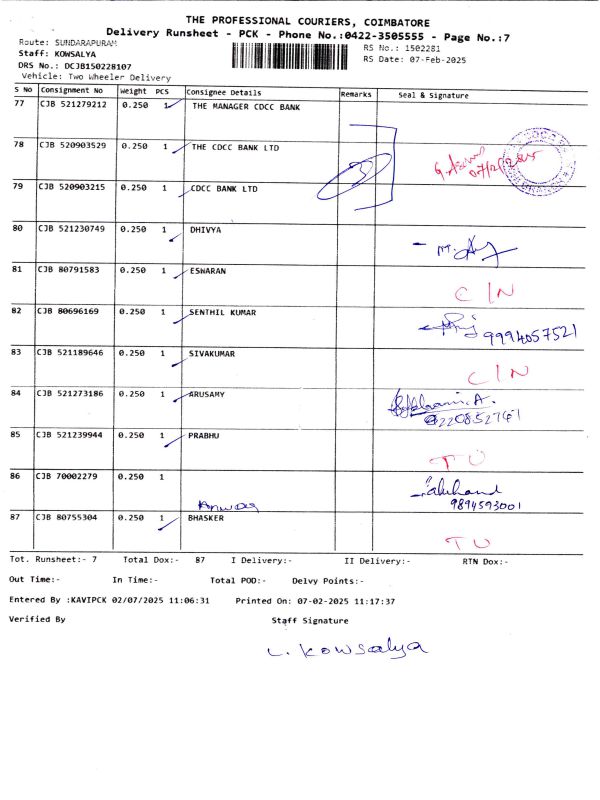 THE PROFESSIONAL COURIERS, COIMBATORE
Delivery Runsheet - PCK - Phone No.:0422-3505555 - Page No.:7
Route: SUNDARAPURAM
RS No.: 1502281
Staff: KOWSALYA
RS Date: 07-Feb-2025
DRS No.: DCJB150228107
Vehicle: Two Wheeler Delivery
S No Consignment No Weight PCS Consignee Details Remarks Seal & Signature
77 CJB 521279212 0.250 1 THE MANAGER CDCC BANK
78 CJB 520903529 0.250 1 THE CDCC BANK LTD
07/2/2025
79 CJB 520903215 0.250 1 CDCC BANK LTD
3
80 CJB 521230749 0.250 1 DHIVYA
81 CJB 80791583 0.250 1 ESWARAN
C/N
82 CJB 80696169 0.250 1 SENTHIL KUMAR
9994057521
83 CJB 521189646 0.250 1 SIVAKUMAR
C/N
84 CJB 521273186 0.250 1 ARUSAMY
85 CJB 521239944 0.250 1 PRABHU
TU
86 CJB 70002279 0.250 1
9894593001
87 CJB 80755304 0.250 1 BHASKER
TU
Tot. Runsheet:- 7 Total Dox:- 87 I Delivery:- II Delivery:- RTN Dox:-
Out Time:- In Time:- Total POD:- Delvy Points:-
Entered By :KAVIPCK 02/07/2025 11:06:31 Printed On: 07-02-2025 11:17:37
Verified By Staff Signature
L. Kowsalya